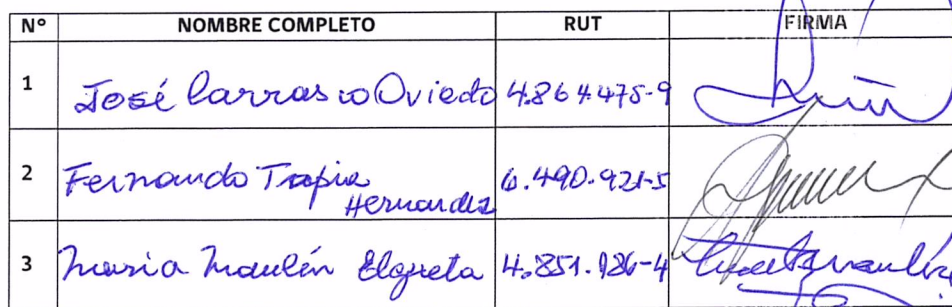 N° NOMBRE COMPLETO RUT FIRMA
1 José Carrasco Oviedo 4.864.475-9
2 Fernando Tapia 6.490.921-5
Hernandez
3 Maria Maulén Elgueta 4.851.926-4